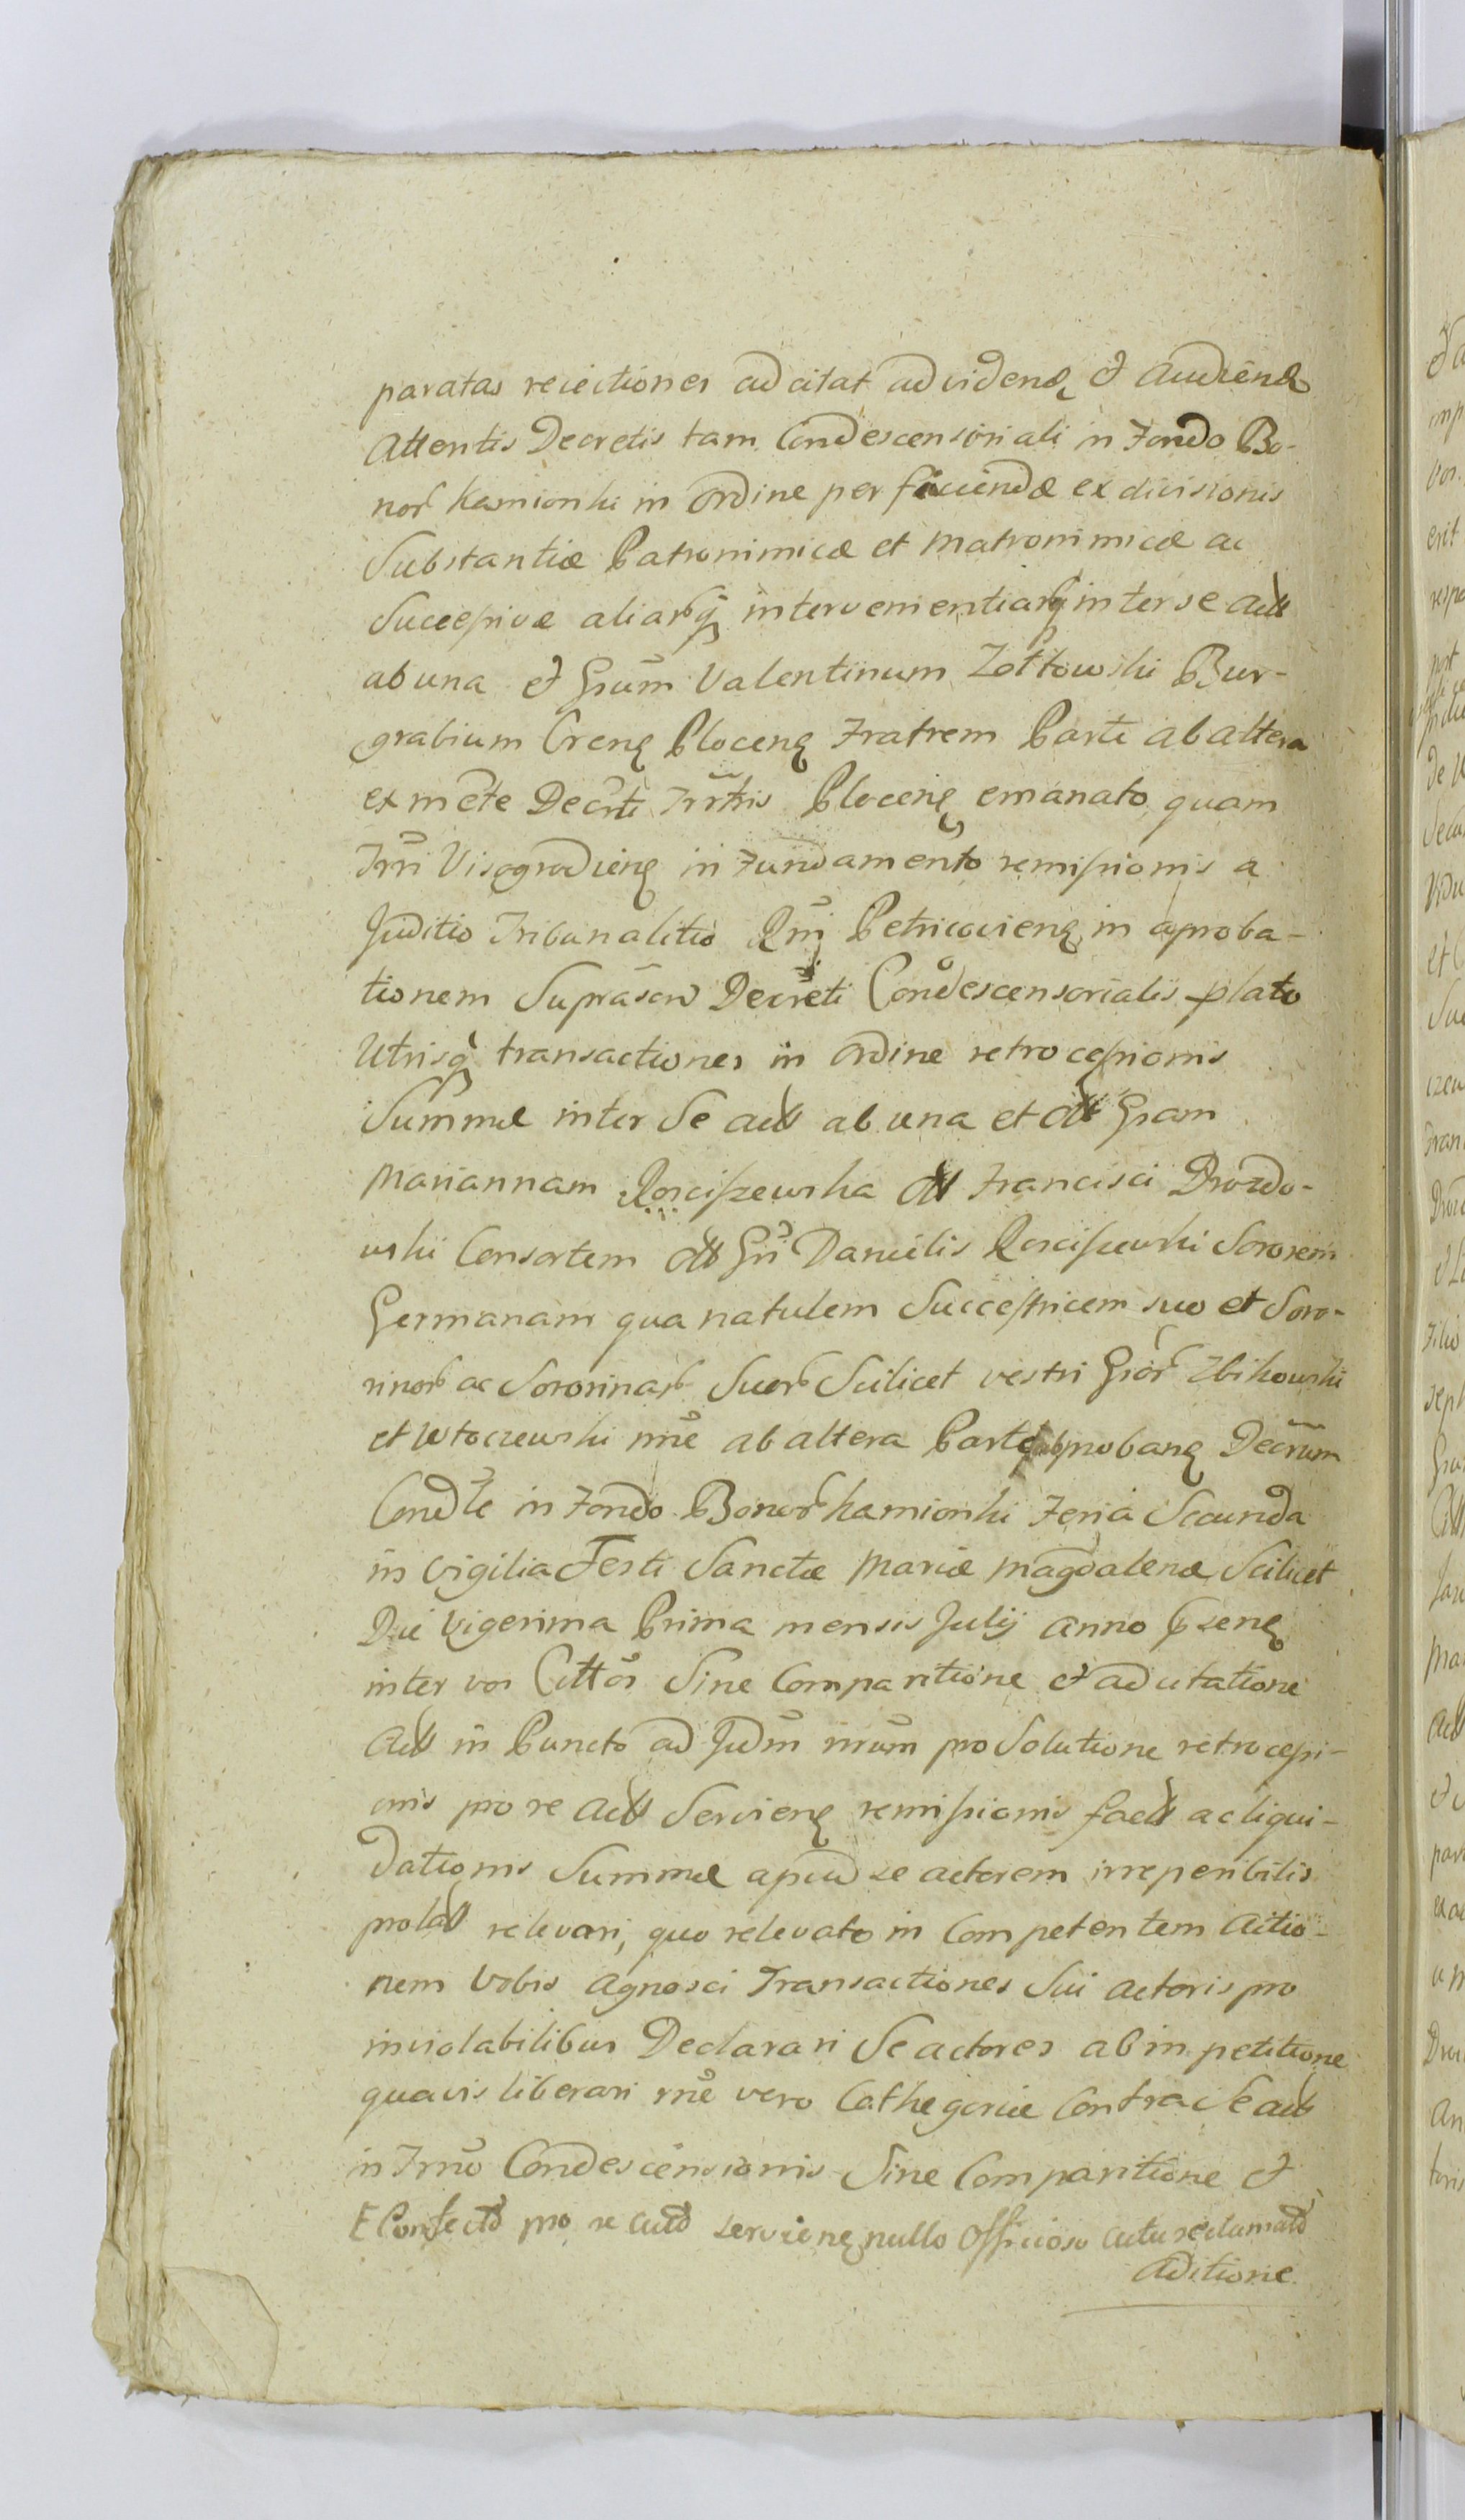 paratas reiectiones adcitat ad videnđ et Audienđ
Attentis Decretis tam Condescensoriali in Fondo Bo-
nor Kamionki in ordine perficiendæ exdivisionis
Substantiæ Patronimicæ et Matronimicæ ac
Successivæ aliarq intervenientiarq inter se act
ab una et Grum Valentinum Zołtowski Bur-
grabium Cren Plocen Fratrem Parte ab altera
ex mete Decrti Trrtris Plocen emanato quam
Trri Visogrodien in Fundamento remissionis a
Juditio Tribunalitio Rni Petricovien in aproba-
tionem Suprascr Decreti Condescensorialis plato
Utrisq transactiones in ordine retrocessionis
Summæ inter Se act ab una et olt Gram
Mariannam Rosciszewska olt Francisci Drozdo-
wski Consortem olt Gri Danielis Rosciszewski Sororem
Germanam qua natulem Successricem suo et Soro-
rinor ac Sororinar Suor Scilicet vestri Gror Zbikowski
et Wtoczewski nne ab altera Parte abprobanđ Decrum
Condle in Fondo Bonor Kamionki Feria Secunda
in Vigilia Festi Sanctæ Mariæ Magdalenæ Scilicet
Die Vigesima Prima mensis Julij Anno Psen
inter vos Cittos Sine Comparitione et adcitatione
Act in Puncto ad Judm nrum pro Solutione retrocessi-
onis pro re Act Servien remissionis fact ac liqui-
dationis Summæ apud se actorem irreperibilis
prolat relevari, quo relevato in Competentem Actio-
nem Vobis Agnosci Transactiones Sui Actoris pro
inviolabilibus Declarari Se actores ab inpetitione
quavis liberari nne vero Cathegoriæ Contra Se act
in Trno Condescensionis Sine Comparitione et
Confecto pro re acto servien nullo Officioso actu reclamato
Aditione